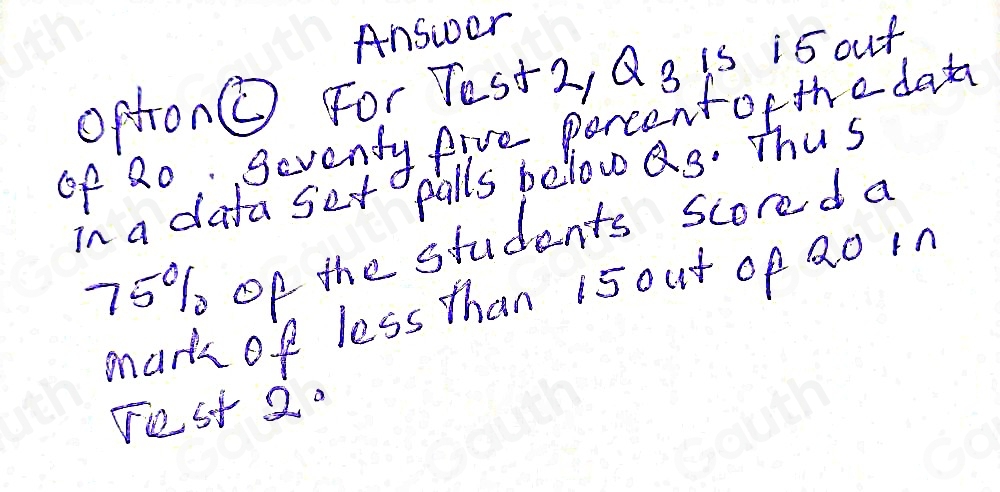 Answer
option Ⓒ For Test 2, Q3 is 15 out
of 20. Seventy five percent of the data
in a data set falls below Q3. Thus
75% of the students scored a
mark of less than 15 out of 20 in
Test 2.